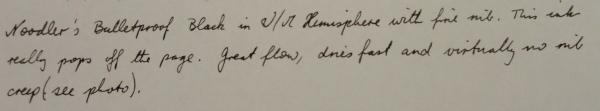 Noodler's Bulletproof Black in W/M Hemisphere with fine nib. This ink
really pops off the page. Great flow, dries fast and virtually no nib
creep (see photo).